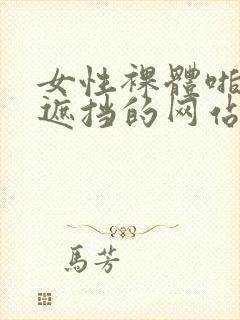 女性裸體啪
遮挡的网佔
馬芳